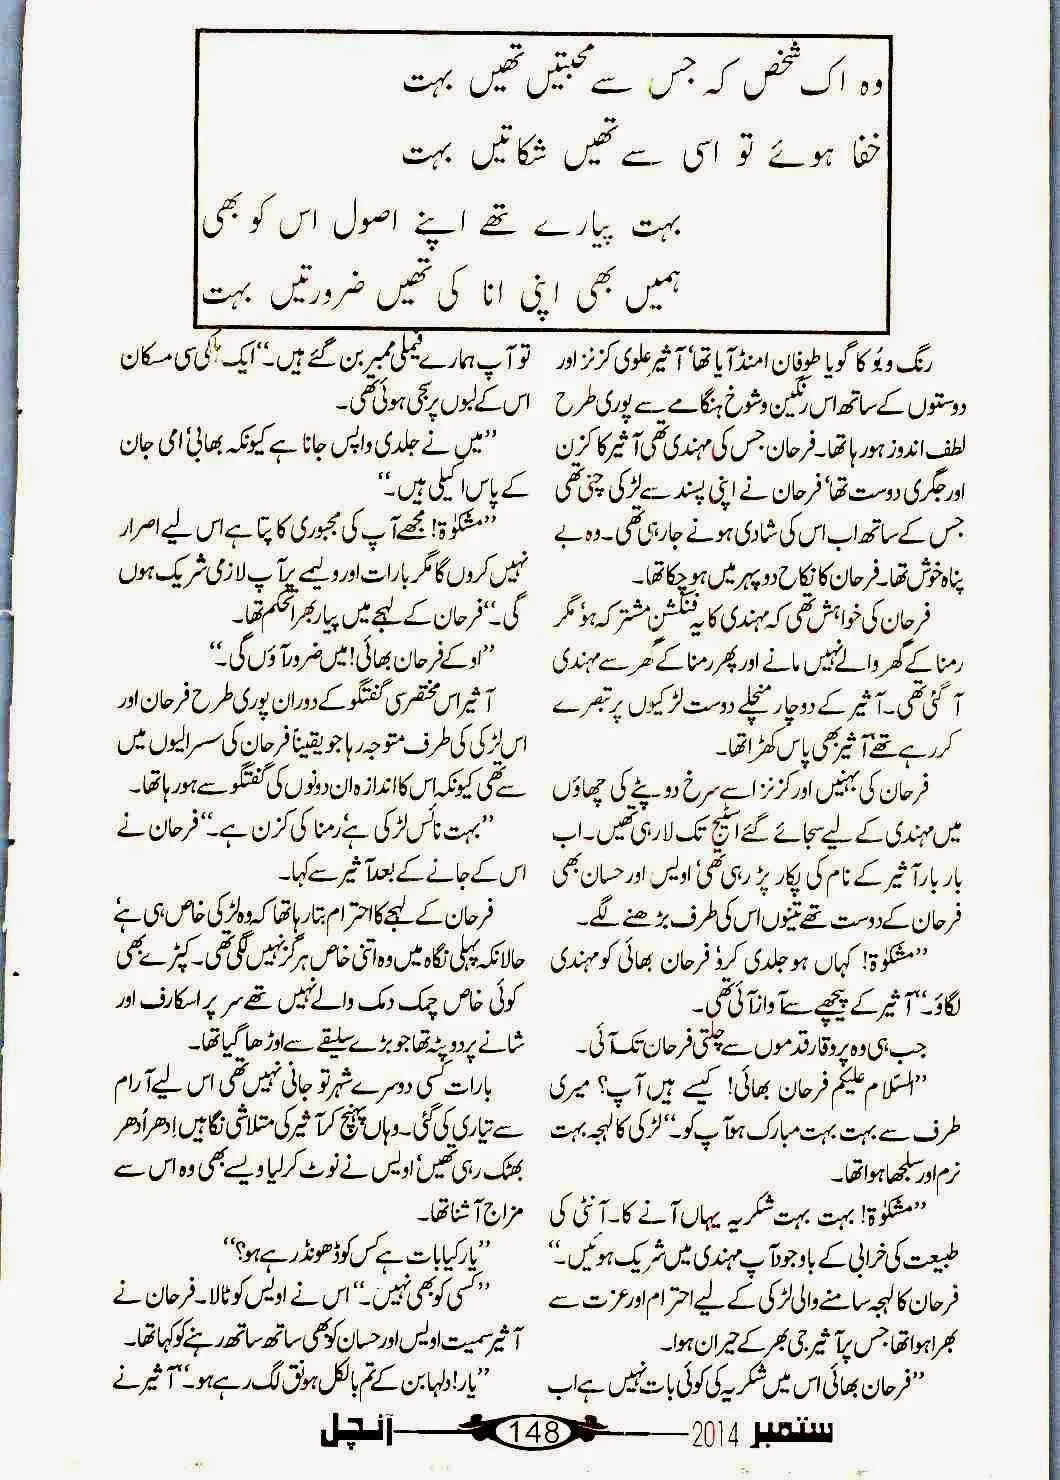 وہ اک شخص کہ جس سے محبتیں تھیں بہت
خفا ہوئے تو اسی سے تھیں شکائتیں بہت
بہت پیارے تھے اپنے اصول اس کو بھی
ہمیں بھی اپنی انا کی تھیں ضرورتیں بہت
رنگ و بو کا گویا طوفان امنڈ آیا تھا‘ آثیر علوی کزنز اور
دوستوں کے ساتھ اس رنگین و شوخ ہنگامے سے پوری طرح
لطف اندوز ہو رہا تھا۔ فرحان جس کی مہندی تھی آثیر کا کزن
اور جگری دوست تھا‘ فرحان نے اپنی پسند سے لڑکی چنی تھی
جس کے ساتھ اب اس کی شادی ہونے جا رہی تھی۔ وہ بے
پناہ خوش تھا۔ فرحان کا نکاح دوپہر میں ہو چکا تھا۔
فرحان کی خواہش تھی کہ مہندی کا یہ فنکشن مشترکہ ہو‘ مگر
رمنا کے گھر والے نہیں مانے اور پھر رمنا کے گھر سے مہندی
آ گئی تھی۔ آثیر کے دو چار منچلے دوست لڑکیوں پر تبصرے
کر رہے تھے‘ آثیر بھی پاس کھڑا تھا۔
فرحان کی بہنیں اور کزنز اسے سرخ دوپٹے کی چھاؤں
میں مہندی کے لیے سجائے گئے اسٹیج تک لا رہی تھیں۔ اب
بار بار آثیر کے نام کی پکار پڑ رہی تھی‘ اویس اور حسان بھی
فرحان کے دوست تھے تینوں اس کی طرف بڑھنے لگے۔
”مشکوٰۃ! کہاں ہو جلدی کرو‘ فرحان بھائی کو مہندی
لگاؤ۔“ آثیر کے پیچھے سے آواز آئی تھی۔
جب ہی وہ پروقار قدموں سے چلتی فرحان تک آئی۔
”السّلام علیکم فرحان بھائی! کیسے ہیں آپ؟ میری
طرف سے بہت بہت مبارک ہو آپ کو۔“ لڑکی کا لہجہ بہت
نرم اور سلجھا ہوا تھا۔
”مشکوٰۃ! بہت بہت شکریہ یہاں آنے کا۔ آنٹی کی
طبیعت کی خرابی کے باوجود آپ مہندی میں شریک ہوئیں۔“
فرحان کا لہجہ سامنے والی لڑکی کے لیے احترام اور عزت سے
بھرا ہوا تھا جس پر آثیر جی بھر کے حیران ہوا۔
”فرحان بھائی اس میں شکریہ کی کوئی بات نہیں ہے اب
تو آپ ہمارے فیملی ممبر بن گئے ہیں۔“ ایک ہلکی سی مسکان
اس کے لبوں پر سجی ہوئی تھی۔
”میں نے جلدی واپس جانا ہے کیونکہ بھابی‘ امی جان
کے پاس اکیلی ہیں۔“
”مشکوٰۃ! مجھے آپ کی مجبوری کا پتا ہے اس لیے اصرار
نہیں کروں گا مگر بارات اور ولیمے پر آپ لازمی شریک ہوں
گی۔“ فرحان کے لہجے میں پیار بھرا تحکم تھا۔
”اوکے فرحان بھائی! میں ضرور آؤں گی۔“
آثیر اس مختصر سی گفتگو کے دوران پوری طرح فرحان اور
اس لڑکی کی طرف متوجہ رہا جو یقیناً فرحان کی سسرالیوں میں
سے تھی کیونکہ اس کا اندازہ ان دونوں کی گفتگو سے ہو رہا تھا۔
”بہت نائس لڑکی ہے‘ رمنا کی کزن ہے۔“ فرحان نے
اس کے جانے کے بعد آثیر سے کہا۔
فرحان کے لہجے کا احترام بتا رہا تھا کہ وہ لڑکی خاص ہی ہے‘
حالانکہ پہلی نگاہ میں وہ اتنی خاص ہرگز نہیں لگی تھی۔ کپڑے بھی
کوئی خاص چمک دمک والے نہیں تھے سر پر اسکارف اور
شانے پر دوپٹہ تھا جو بڑے سلیقے سے اوڑھا گیا تھا۔
بارات کسی دوسرے شہر تو جانی نہیں تھی اس لیے آرام
سے تیاری کی گئی۔ وہاں پہنچ کر آثیر کی متلاشی نگاہیں اِدھر اُدھر
بھٹک رہی تھیں‘ اویس نے نوٹ کر لیا ویسے بھی وہ اس سے
مزاج آشنا تھا۔
”یار کیا بات ہے کس کو ڈھونڈ رہے ہو؟“
”کسی کو بھی نہیں۔“ اس نے اویس کو ٹالا۔ فرحان نے
آثیر سمیت اویس اور حسان کو بھی ساتھ ساتھ رہنے کو کہا تھا۔
”یار! دلہا بن کے تم بالکل ہونق لگ رہے ہو۔“ آثیر نے
ستمبر 2014 148 آنچل